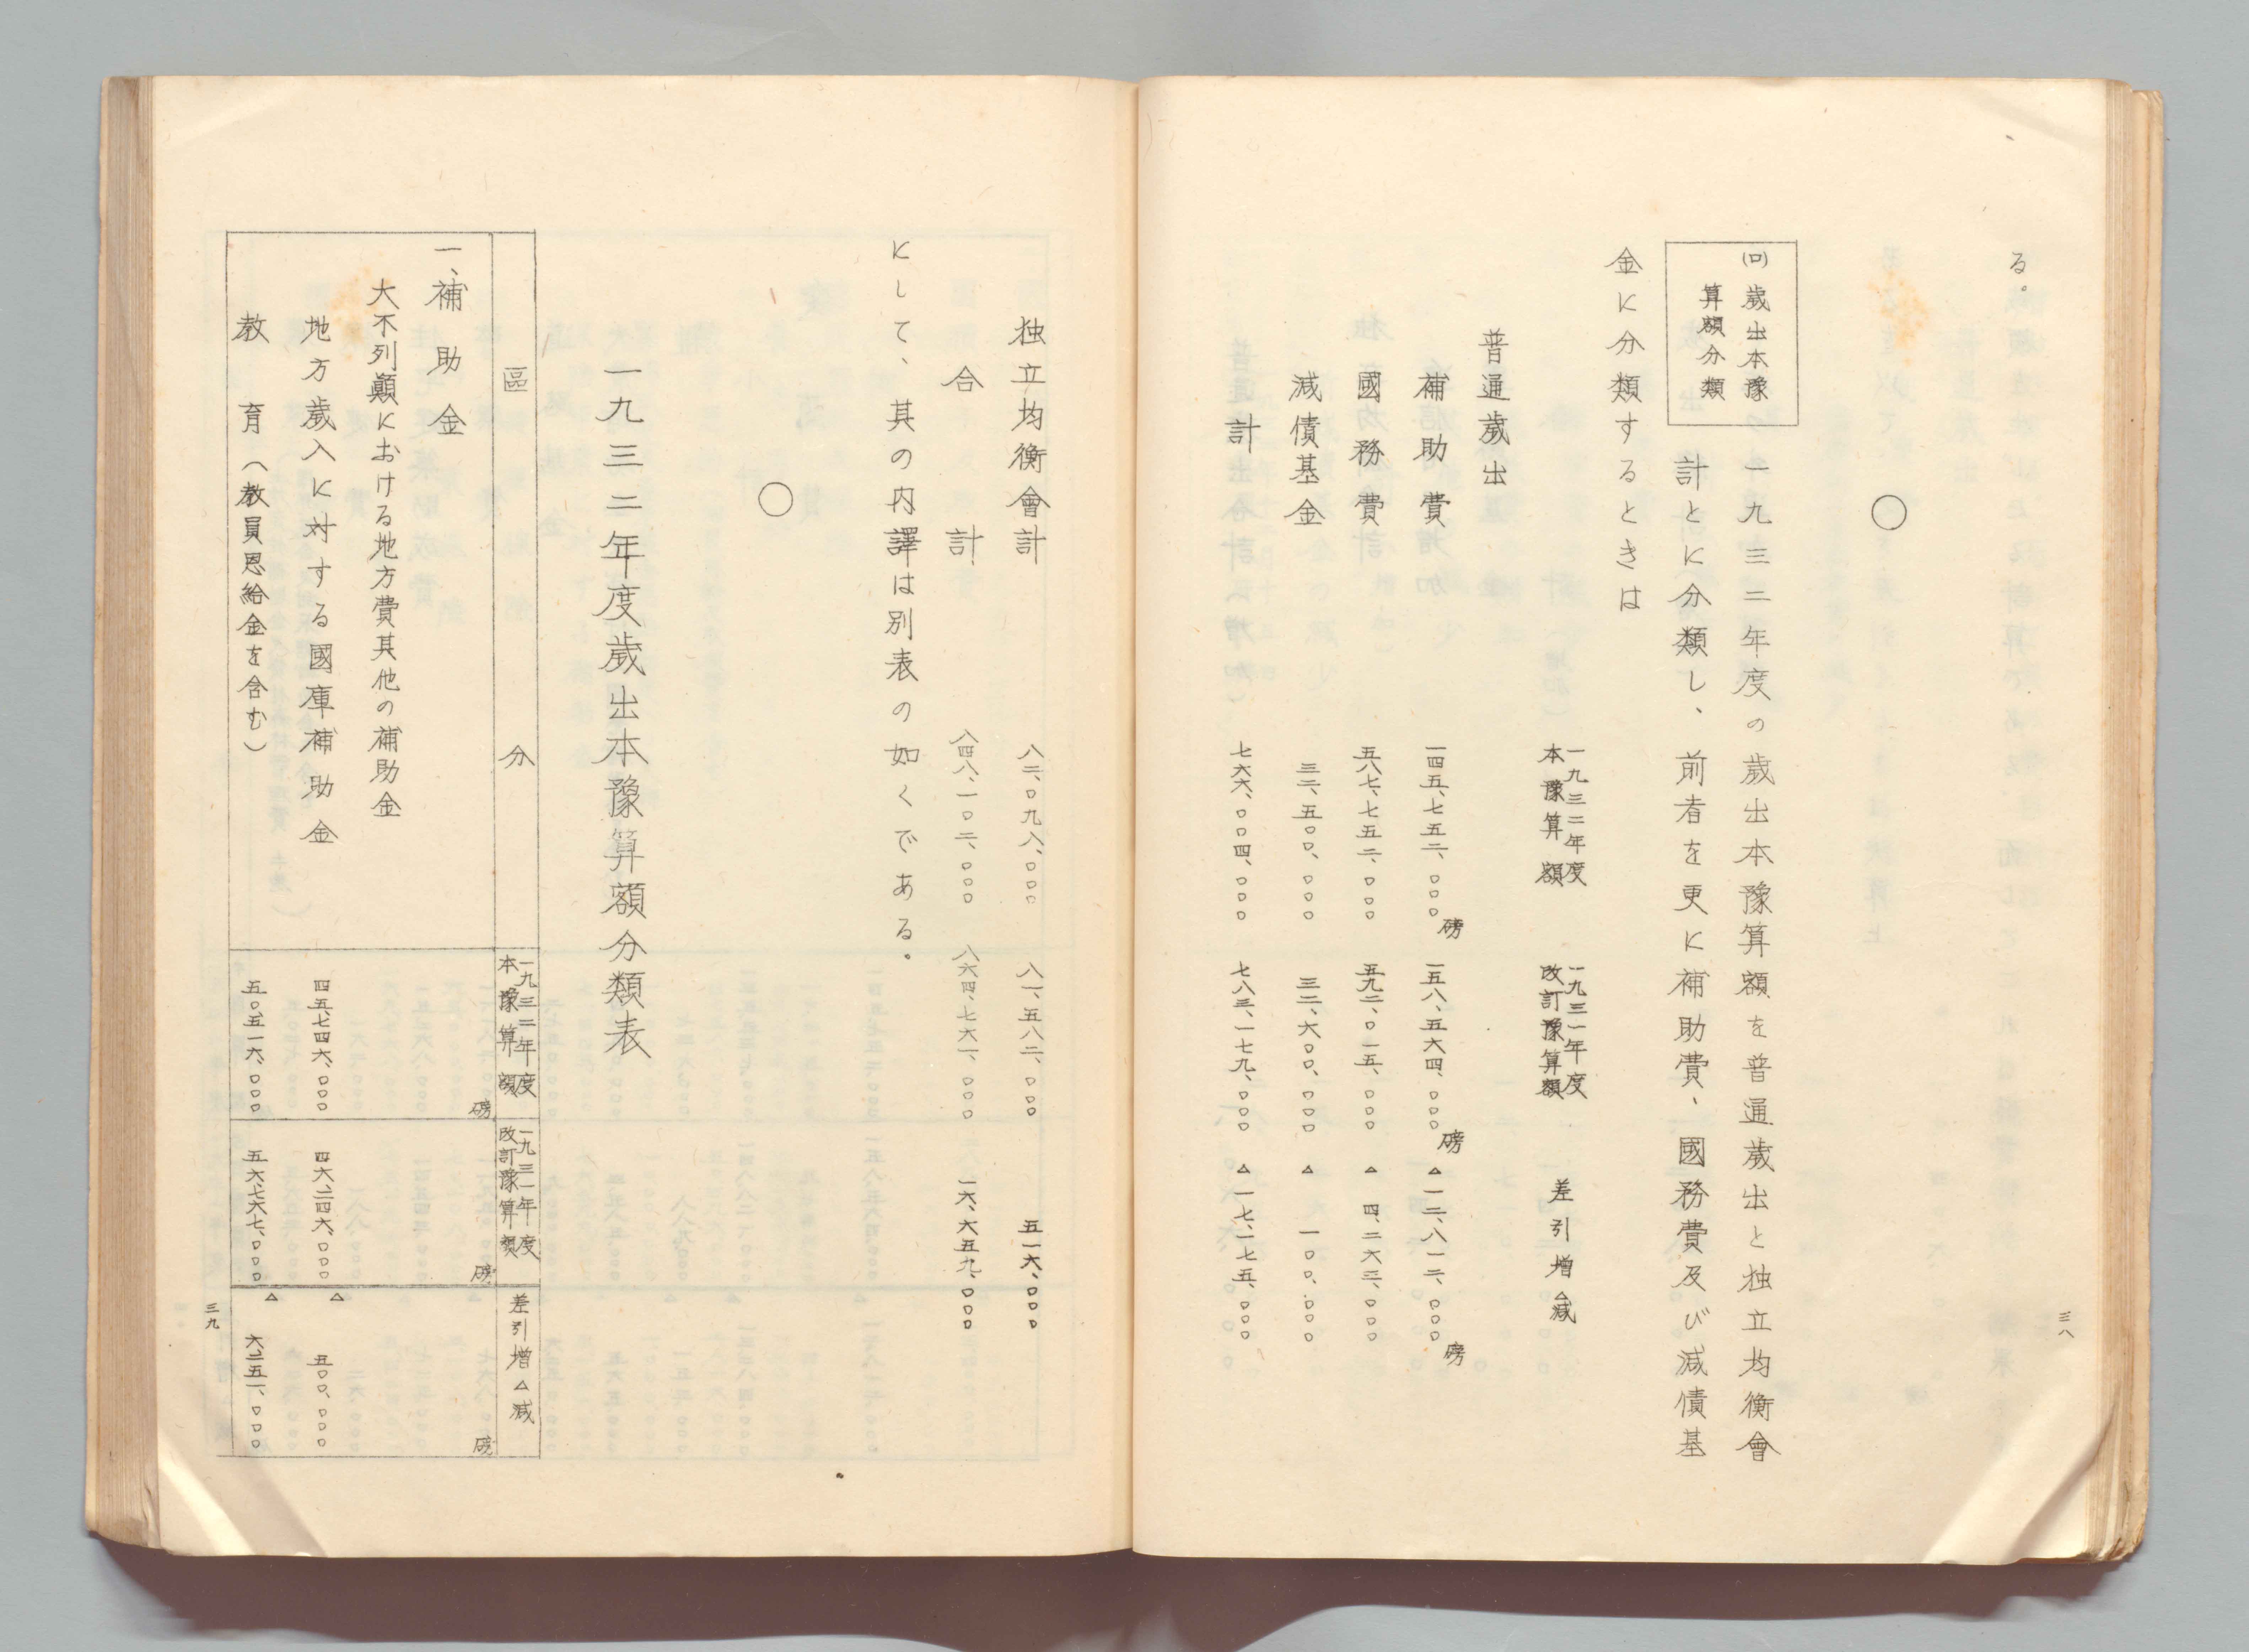 る。
○
(ロ)歳出本豫
算額分類
一九三二年度の歳出本豫算額を普通歳出と独立均衡會
計とに分類し、前者を更に補助費、國務費及び減債基
金に分類するときは
一九三二年度
本豫算額
一九三一年度
改訂豫算額
差引増△減
普通歳出
補助費 一四五、七五二、〇〇〇磅 一五八、五六四、〇〇〇磅 △一二、八一二、〇〇〇磅
國務費 五八七、七五二、〇〇〇 五九二、〇一五、〇〇〇 △四、二六三、〇〇〇
減債基金 三二、五〇〇、〇〇〇 三二、六〇〇、〇〇〇 △一〇〇、〇〇〇
計 七六六、〇〇四、〇〇〇 七八三、一七九、〇〇〇 △一七、一七五、〇〇〇
三八
独立均衡會計 八二、〇九八、〇〇〇 八一、五八二、〇〇〇 五一六、〇〇〇
合計 八四八、一〇二、〇〇〇 八六四、七六一、〇〇〇 一六、六五九、〇〇〇
にして、其の内譯は別表の如くである。
○
一九三二年度歳出本豫算額分類表
區分
一九三二年度
本豫算額
一九三一年度
改訂豫算額
差引増△減
一、補助金 磅 磅 磅
大不列顛における地方費其他の補助金
地方歳入に対する國庫補助金 四五、七四六、〇〇〇 四六、二四六、〇〇〇 △五〇〇、〇〇〇
教育(教員恩給金を含む) 五〇、五一六、〇〇〇 五六、七六七、〇〇〇 △六、二五一、〇〇〇
三九